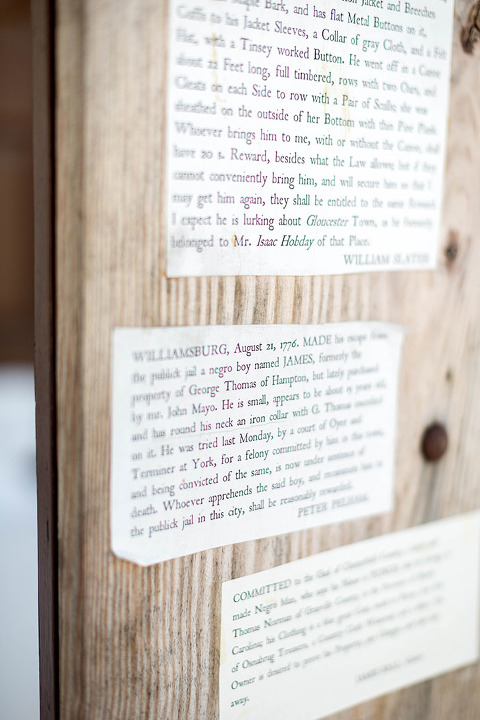 Jacket and Breeches
Bark, and has flat Metal Buttons on it,
Cuffs to his Jacket Sleeves, a Collar of gray Cloth, and a Felt
Hat, with a Tinsey worked Button. He went off in a Canoe
about 22 Feet long, full timbered, rows with two Oars, and
Cleats on each Side to row with a Pair of Sculls; she was
sheathed on the outside of her Bottom with thin Pine Plank.
Whoever brings him to me, with or without the Canoe, shall
have 20 s. Reward, besides what the Law allows; but if they
cannot conveniently bring him, and will secure him so that I
may get him again, they shall be entitled to the same Reward.
I expect he is lurking about Gloucester Town, as he formerly
belonged to Mr. Isaac Hobday of that Place.
WILLIAM SLATER
WILLIAMSBURG, August 21, 1776. MADE his escape from
the publick jail a negro boy named JAMES, formerly the
property of George Thomas of Hampton, but lately purchased
by mr. John Mayo. He is small, appears to be about 15 years old,
and has round his neck an iron collar with G. Thomas
on it. He was tried last Monday, by a court of Oyer and
Terminer at York, for a felony committed by him in this town,
and being convicted of the same, is now under sentence of
death. Whoever apprehends the said boy, and
the publick jail in this city, shall be reasonably rewarded.
PETER PELHAM.
COMMITTED to the Gaol of
made Negro Man, who says his Name is
Thomas Norman of
Carolina; his Clothing is a
of Osnabrug Trousers, a
Owner is desired to prove his Property,
away.